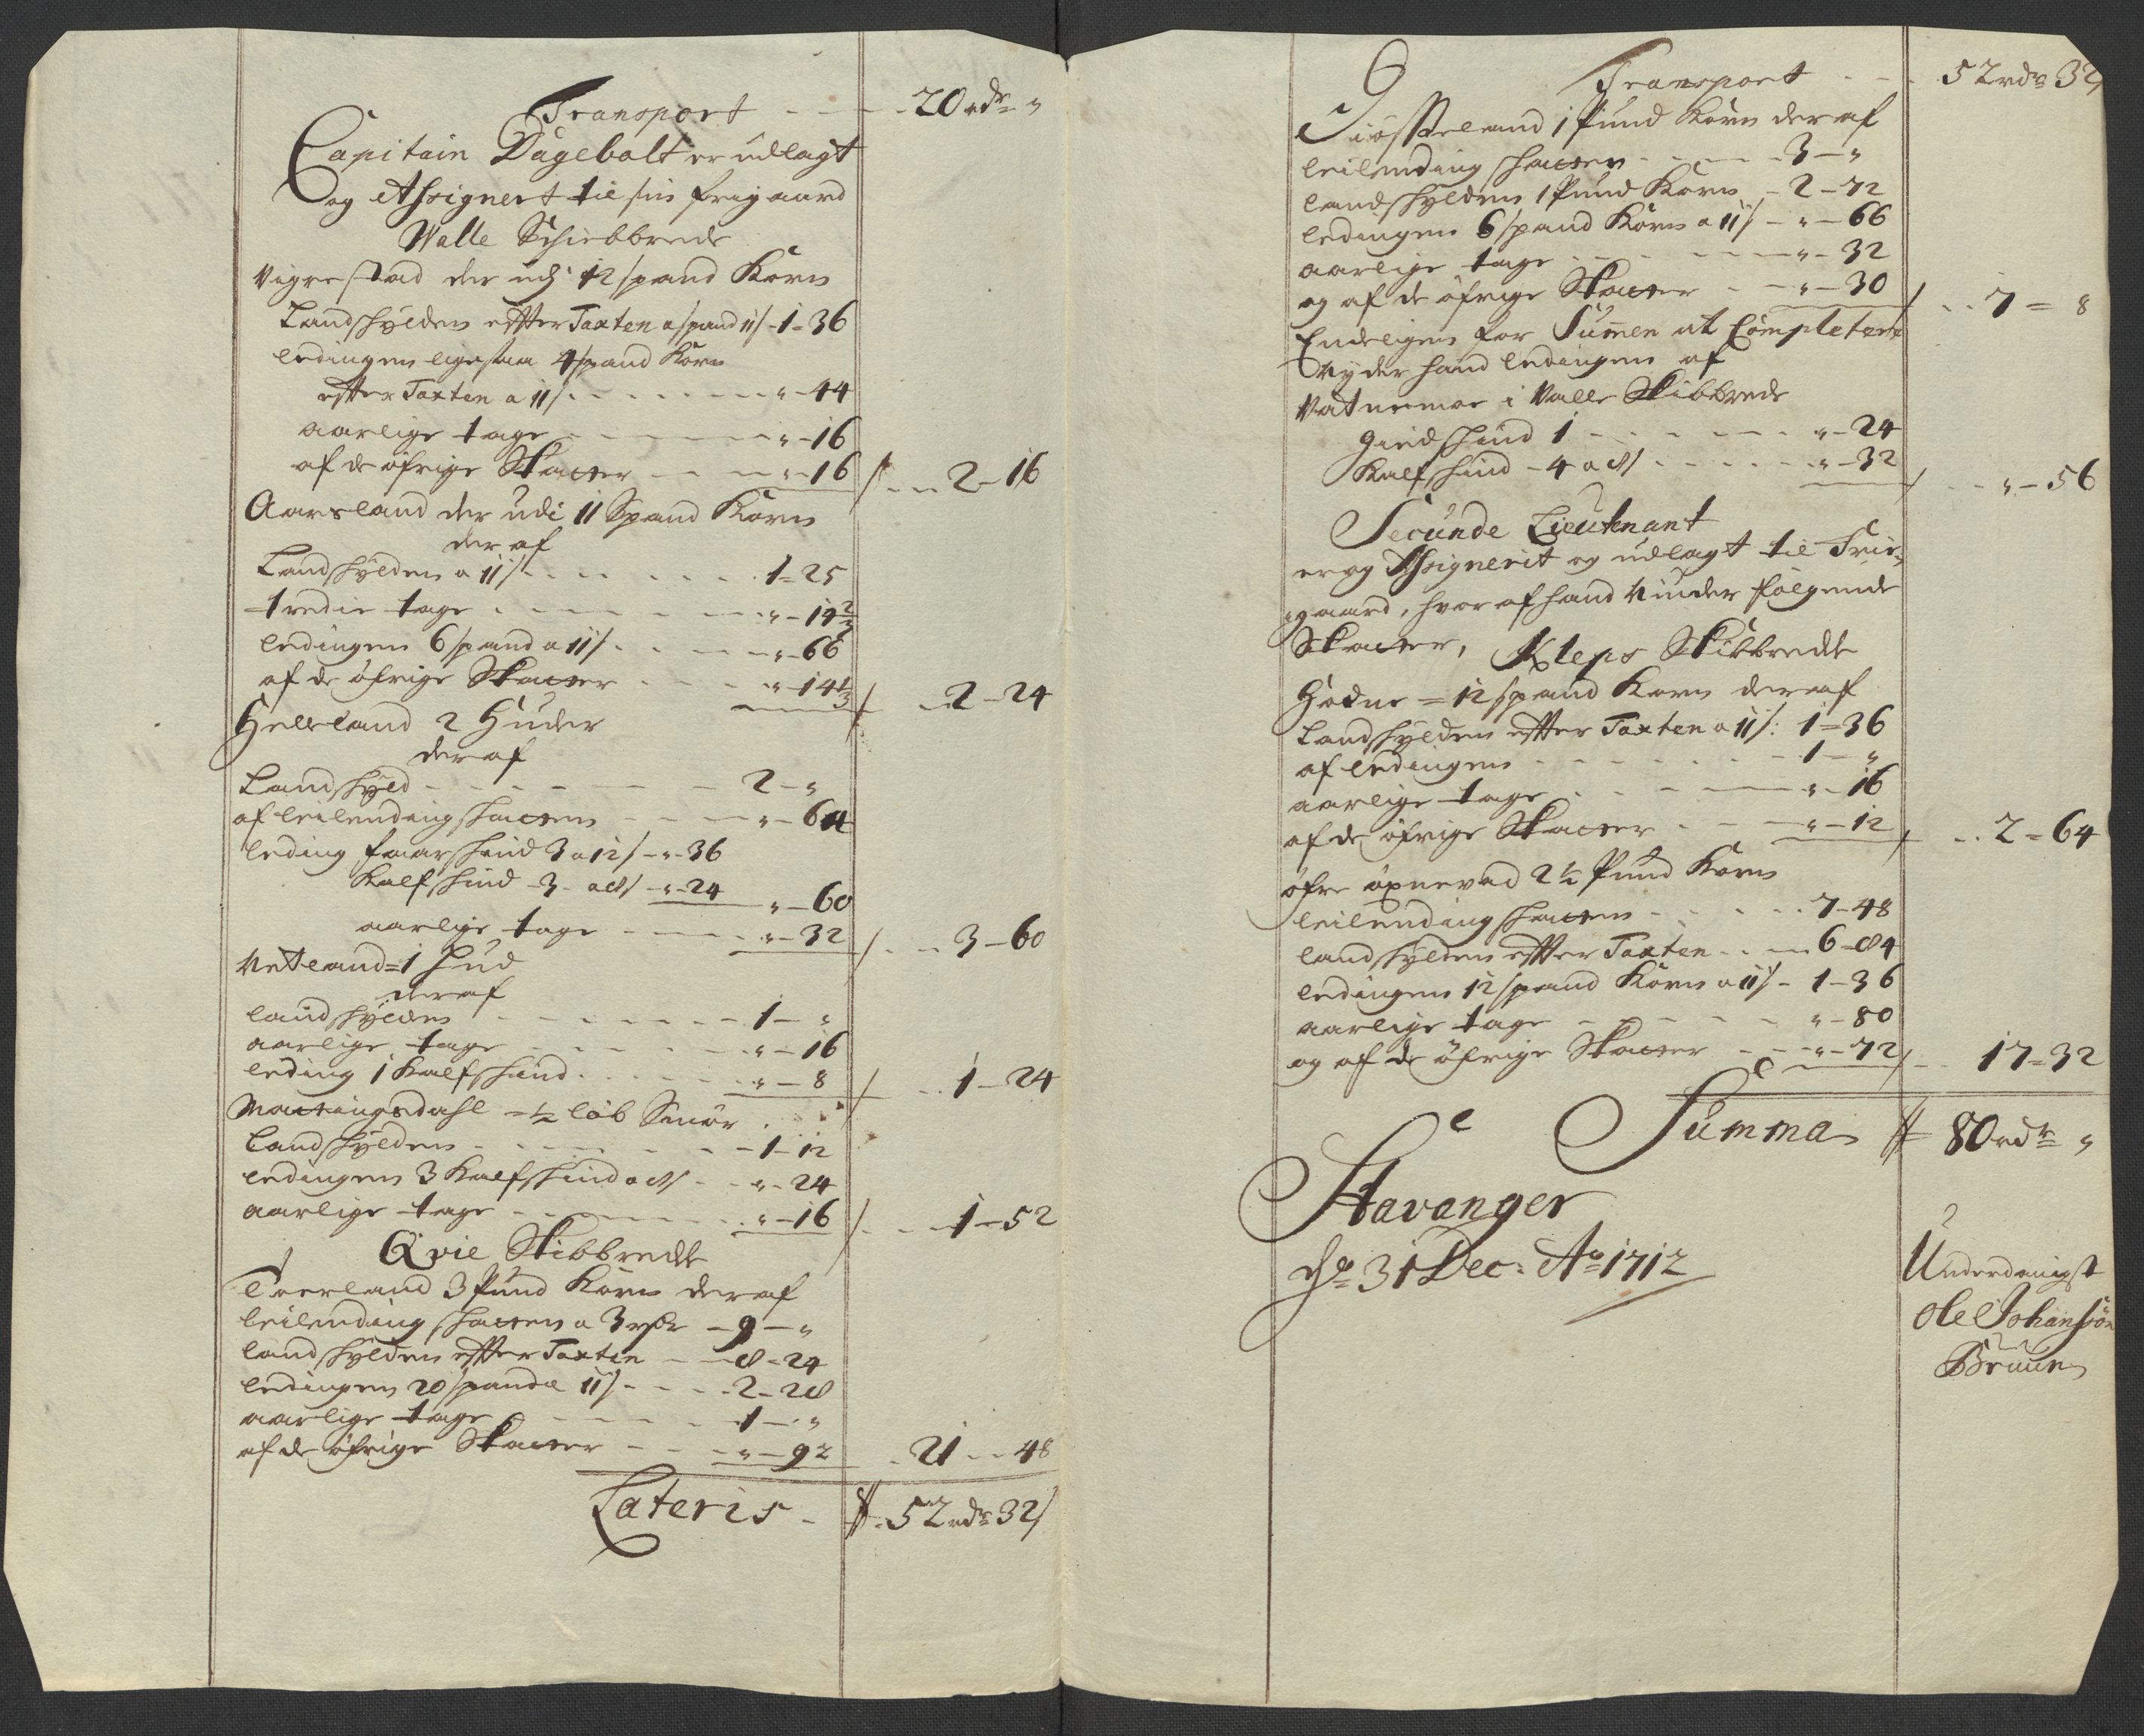 Transport - - - 20 rdr "
Capitain Dagebolt er udlagt
og Assignert til sin frigaard
Walle Schiebbrede
Vigrestad der udj 12 spand Korn
Landskylden efter Taxten a spand 11 s - 1 - 36
ledingen ligesaa 4 spand Korn
efter Taxten a 11 s - - - " - 44
aarlige tage - - - " - 16
af de öfrige Skatter - - " - 16 / - - 2 - 16
Aarsland der udi 11 Spand Korn
der af
Landskylden a 11 s - - - 1 - 25
tredie tage - - - " - 14 2/3
ledingen 6 spand a 11 s - - - " - 66
af de öfrige Skatter - - - " - 14 1/3 / - - 2 - 24
Helleland 2 Huder
der af
Landskyld - - - 2 - "
af leilending skatten - - - " - 64
leding faarskind 3 a 12 s - " - 36
Kalfskind - 3 - a 8 s - " - 24 " - 60
aarlige tage - - - " - 32 / - - 3 - 60
Netland = 1 Hud
deraf
landskylden - - - 1 - "
aarlige tage - - - " - 16
leding 1 Kalfskind - - - " - 8 / - - 1 - 24
Matningsdahl = ½ löb Smör
Landskylden - - - 1 - 12
ledingen 3 Kalfskind a 8 s - - " - 24
aarlige tage - - - " - 16 / - - 1 - 52
Qvie Skibbrede
Tverland 3 Pund Korn deraf
leilending skatten a 3 rdr - 9 - "
landskylden efter Taxten - - 8 - 24
ledingen 20 spand a 11 s - - - 2 - 28
aarlige tage - - - 1 - "
af de öfrige Skatter - - - " - 92 - 21 - - 48
Lateris - 52 rdr 32 s
Transport - - 52 rdr 32
1 Pund Korn deraf
leilending skatten - - - 3 - "
landskylden 1 Pund Korn - 2 - 72
ledingen 6 spand Korn a 11 s - " - 66
aarlige tage - - - " - 32
og af de öfrige Skatter - - " - 30 / - - 7 = 8
Endeligen for Summen at Completere
Nyder hand ledingen af
Vatnemoe i Valle Skibbrede
Giedskind 1 - - - " - 24
Kalfskind - 4 a 8 s - - - " - 32 / - - " - 56
Secunde Lieutenant
er og Assignerit og udlagt til Frie-
gaard, hvor af hand Niuder fölgende
Skatter, Kleps Skibbrede
= 12 spand Korn deraf
Landskylden efter Taxten a 11 s: 1 = 36
af ledingen - - - 1 - "
aarlige tage - - - " - 16
af de öfrige Skatter - - - " - 12 / - - 2 = 64
öfre öxnevad 2 ½ Pund Korn
leilending skatten - - - 7 - 48
landskylden efter Taxten - - 6 - 84
ledingen 12 spand Korn a 11 s - 1 - 36
aarlige tage - - - " - 80
og af de öfrige Skatter - - " - 72 / - 17 = 32
Summa 80 rdr "
Stavanger
d 31 Dec: Ao 1712
Underdanigst
Ole Johansön
Bruun